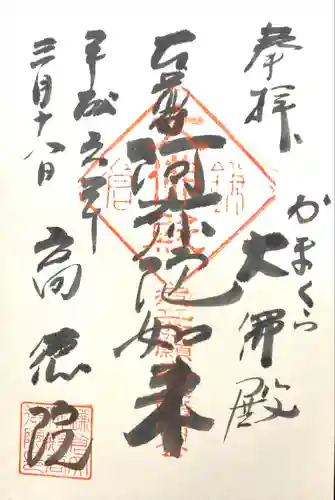 奉拝
かまくら
大佛殿
本尊
阿弥陀如来
平成六年
三月十八日
高徳院
鎌倉